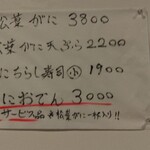 松葉がに 3800
松葉がに天ぷら 2200
にちらし寿司 小 1900
におでん 3000
サービス品 松葉がに一杯入り!!